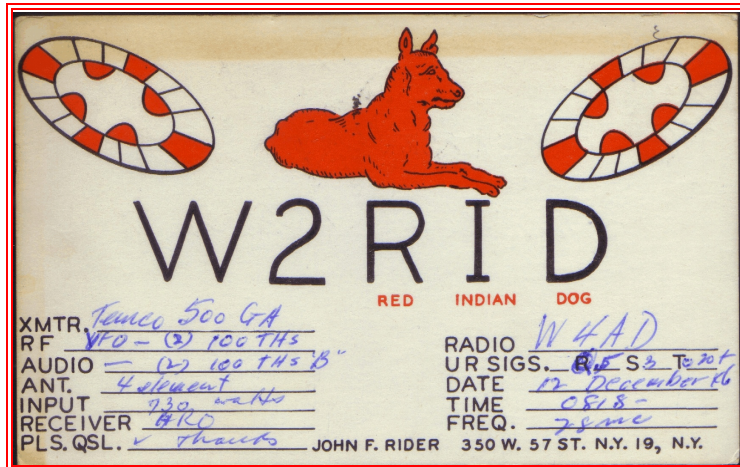 W2RID
RED INDIAN DOG
XMTR. Temco 500 GA
RF VFO - (2) 100 THs
AUDIO - (2) 100 THs "B"
ANT. 4 element
INPUT 730 watts
RECEIVER HRO
PLS. QSL. ✓ Thanks
RADIO W4AD
UR SIGS. R 5 S T
DATE 12 December 46
TIME 0818-
FREQ. 28 mc
JOHN F. RIDER 350 W. 57 ST. N.Y. 19, N.Y.